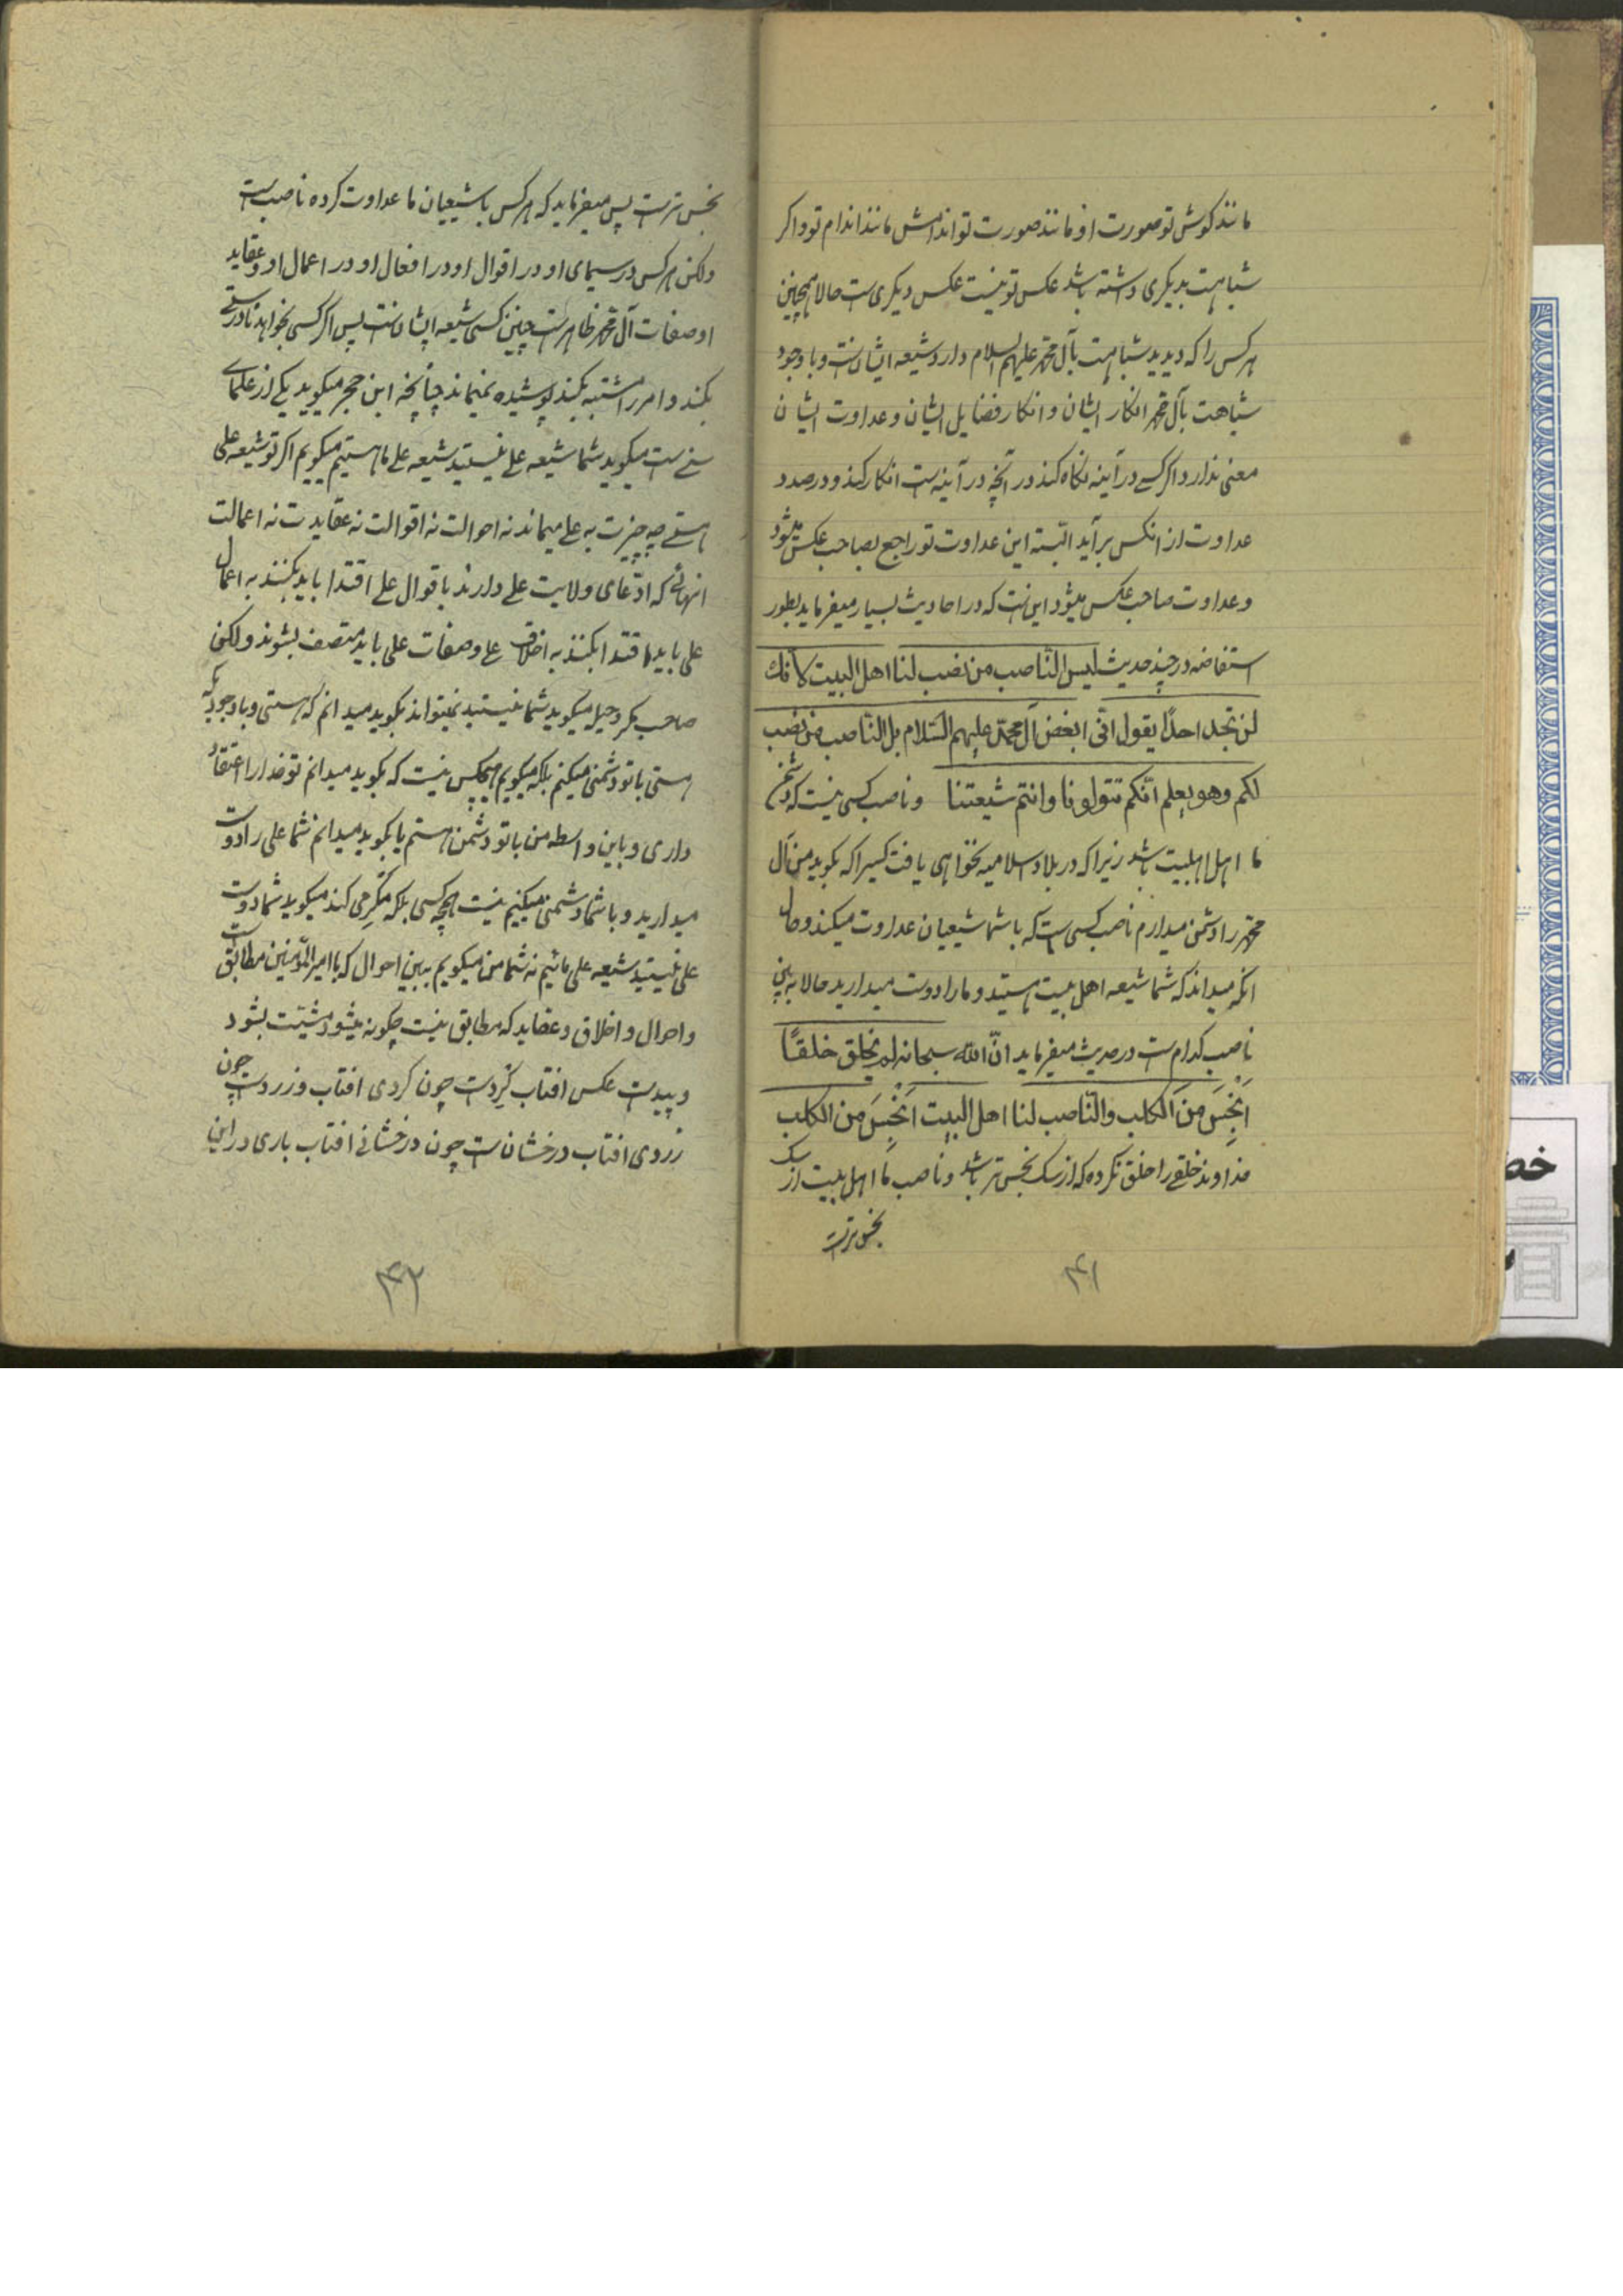 مانند کوش تو صورت او مانند صورت تو اندامش مانند اندام تو و اکر
شباهت بدیکری داشته باشد عکس تو نیست عکس دیکری است حالا همچنین
هر کس را که دیدید شباهت بآل محمد علیهم السلام دارد شیعه ایشانست و با وجود
شباهت بآل محمد انکار ایشان و انکار فضایل ایشان و عداوت ایشان
معنی ندارد اکر کسی در آینه نکاه کند در آنچه در آینه است انکار کند و درصدد
عداوت از انکس برآید البته این عداوت تو راجع بصاحب عکس میشود
و عداوت صاحب عکس میشود این است که در احادیث بسیار میفرماید بطور
استفاضه در چند حدیث لیس النّاصب من نصب لنا اهل البیت لانک
لن تجد احدًا یقول انّی ابغض آل محمّد علیهم السّلام بل النّاصب من نصب
لکم و هو یعلم انّکم تتولونا و انتم شیعتنا و ناصب کسی نیست که دشمن
ما اهل البیت باشد زیرا که در بلاد اسلامیه نخواهی یافت کسیرا که بکوید من آل
محمّد را دشمن میدارم ناصب کسی است که با شما شیعیان عداوت میکند و حال
انکه میداند که شما شیعه اهل بیت هستید و ما را دوست میدارید حالا به بین
ناصب کدام است در حدیث میفرماید انّ اللّه سبحانه لم یخلق خلقًا
اَنْجَسَ من الکلب و النّاصب لنا اهل البیت اَنْجَسَ من الکلب
خداوند خلقی را خلق نکرده که از سک نجس تر باشد و ناصب ما اهل بیت از سک
نجس تر است
۴۱
نجس تر است پس میفرماید که هر کس با شیعیان ما عداوت کرده ناصب است
ولکن هر کس در سیمای او در اقوال او در افعال او در اعمال او و عقاید
او صفات آل محمّد ظاهر است چنین کسی شیعه ایشانست پس اکر کسی بخواهد نادرستی
بکند و امر را مشتبه بکند پوشیده نمیماند چنانچه ابن حجر میکوید یکی از علمای
سنی است میکوید شما شیعه علی نیستید شیعه علی ما هستیم میکویم اکر تو شیعه علی
هستی چه چیزت به علی میماند نه احوالت نه اقوالت نه عقایدت نه اعمالت
انهائی که ادّعای ولایت علی دارند باقوال علی اقتدا باید بکنند به اعمال
علی باید اقتدا بکنند به اخلاق علی و صفات علی باید متصف بشوند ولکن
صاحب مکر و حیله میکوید شما نیستید نمیتواند بکوید میدانم که هستی و با وجودیکه
هستی با تو دشمنی میکنم بلکه میکویم هیچکس نیست که بکوید میدانم تو خدا را اعتقاد
داری و باین واسطه من با تو دشمن هستم یا بکوید میدانم شما علی را دوست
میدارید و با شما دشمنی میکنیم نیست همچه کسی بلکه مکر می کند میکوید شما دوست
علی نیستید شیعه علی مائیم نه شما من میکویم ببین احوال که با امیرالمؤمنین مطابق است
و احوال و اخلاق و عقاید که مطابق نیست چکونه میشود مشیّت بشود
و پیداست عکس افتاب کرد است چون کردی افتاب و زرد است چون
زردی افتاب درخشان است چون درخشانی افتاب باری در این
۴۲
خط